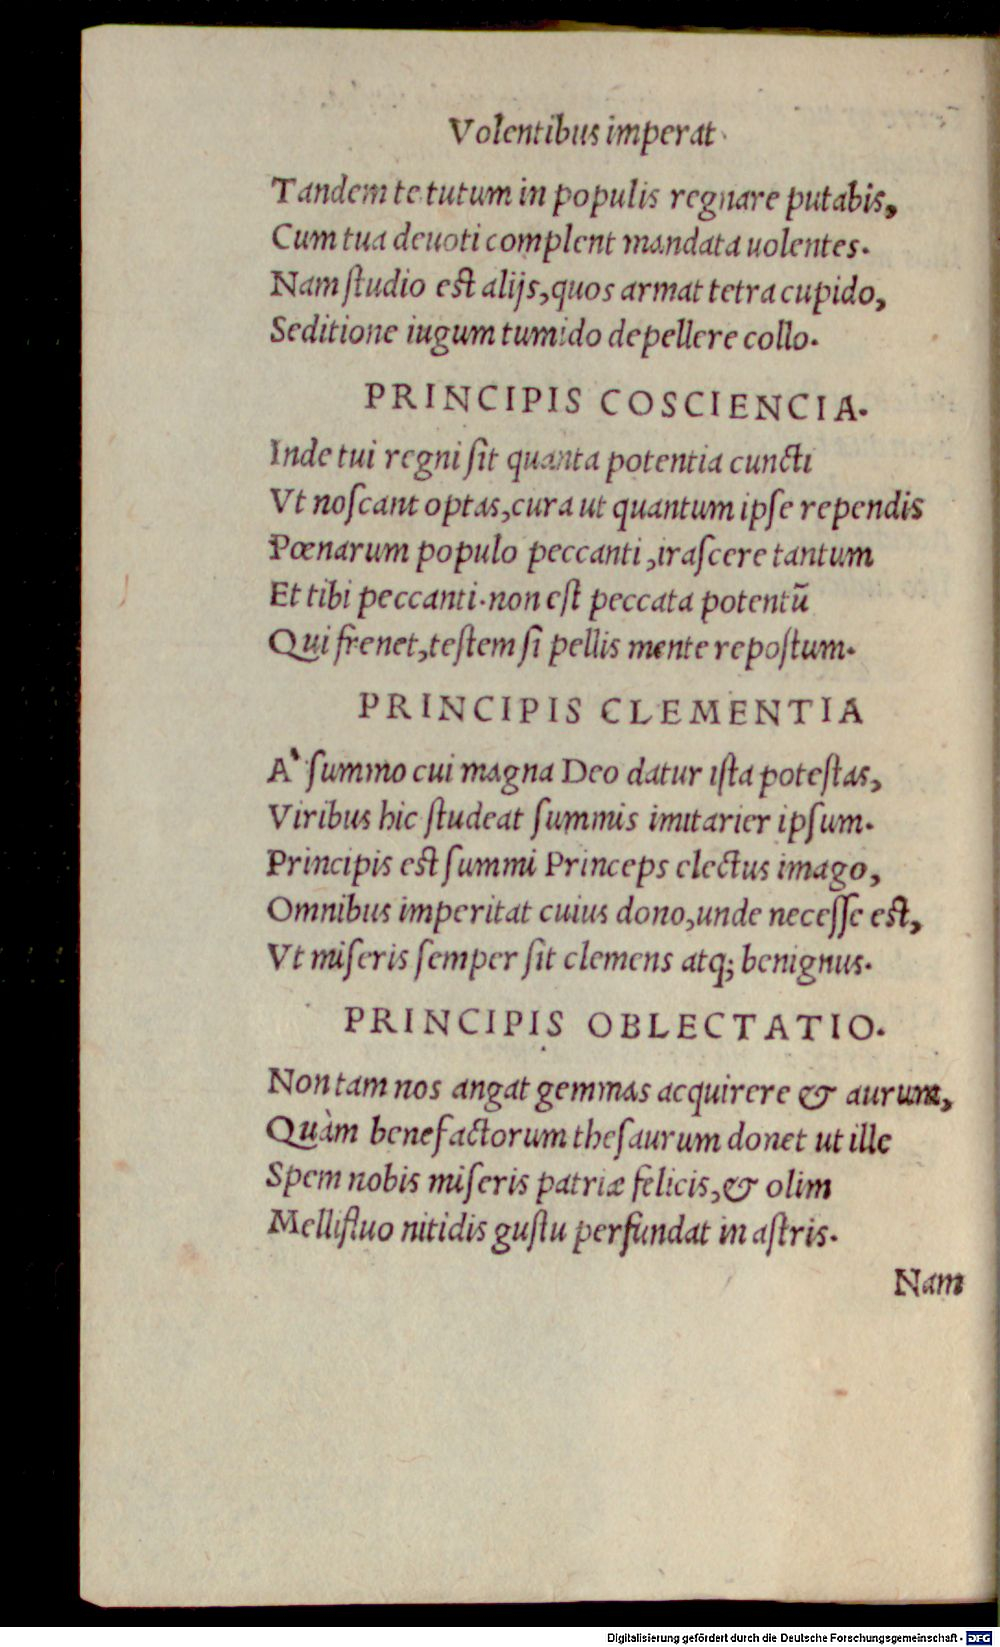 Volentibus imperat.
Tandem te tutum in populis regnare putabis,
Cum tua deuoti complent mandata uolentes.
Nam ſtudio eſt alijs, quos armat tetra cupido,
Seditione iugum tumido depellere collo.
PRINCIPIS COSCIENCIA.
Inde tui regni ſit quanta potentia cuncti
Vt noſcant optas, cura ut quantum ipſe rependis
Pœnarum populo peccanti, iraſcere tantum
Et tibi peccanti. non eſt peccata potentũ
Qui frenet, teſtem ſi pellis mente repoſtum.
PRINCIPIS CLEMENTIA
A` ſummo cui magna Deo datur iſta poteſtas,
Viribus hic ſtudeat ſummis imitarier ipſum.
Principis eſt ſummi Princeps electus imago,
Omnibus imperitat cuius dono, unde neceſſe eſt,
Vt miſeris ſemper ſit clemens atq; benignus.
PRINCIPIS OBLECTATIO.
Non tam nos angat gemmas acquirere & aurum,
Quàm benefactorum theſaurum donet ut ille
Spem nobis miſeris patriæ felicis, & olim
Mellifluo nitidis guſtu perfundat in aſtris.
Nam
Digitalisierung gefördert durch die Deutsche Forschungsgemeinschaft - DFG